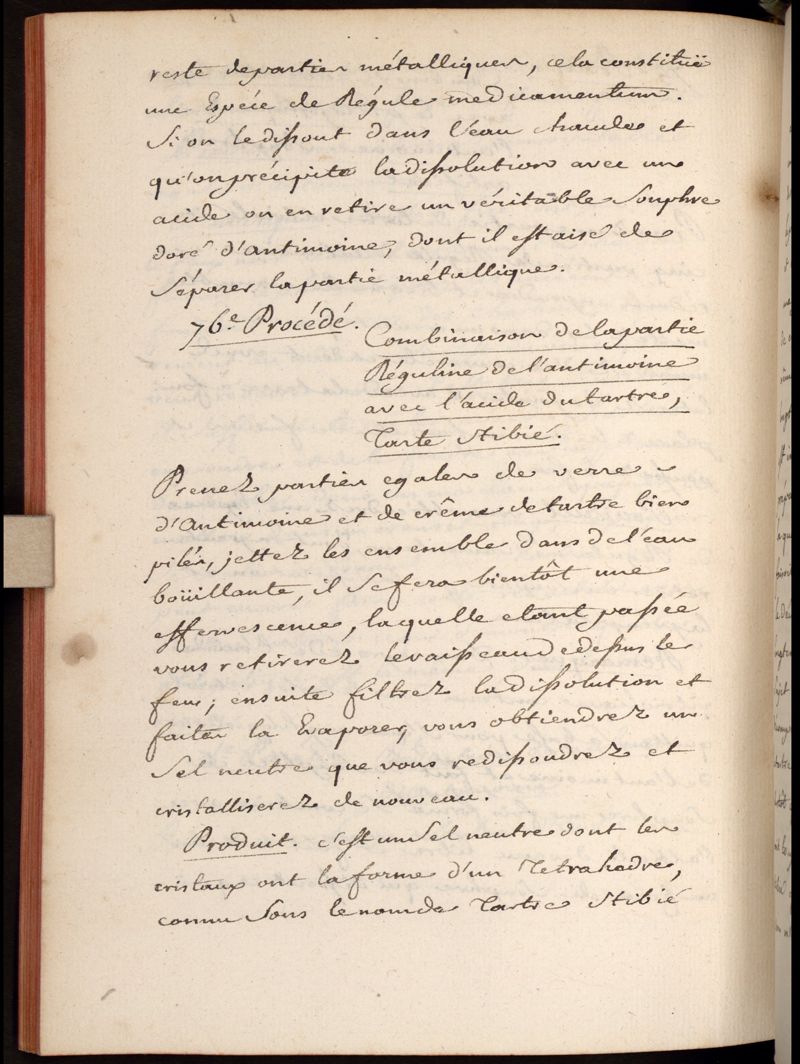 reste departies métalliques, cela constituë
une Espéce de Régule medicamentum.
Si on le dissout dans l'eau chaude et
qu'on précipite la dissolution avec un
acide on en retire un véritable Souphre
doré d'Antimoine, dont il est aisé de
Séparer la partie métallique.
76.e Procédé.
Combinaison de la partie
Réguline de l'antimoine
avec l'acide du tartre,
Tarte Stibié.
Prenez parties egales de verre
d'Antimoine et de crême de tartre bien
pilés, jettez les ensemble dans de l'eau
boüillante, il se fera bientôt une
effervescence, laquelle etant passée
vous retirerez le vaisseau de dessus le
feu; ensuite filtrez la dissolution et
faites la Evaporer, vous obtiendrez un
Sel neutre que vous redissoudrez et
cristalliserez de nouveau.
Produit. c'est un Sel neutre dont les
cristaux ont la forme d'un Tetrahadre,
connu Sous le nom de Tartre Stibié